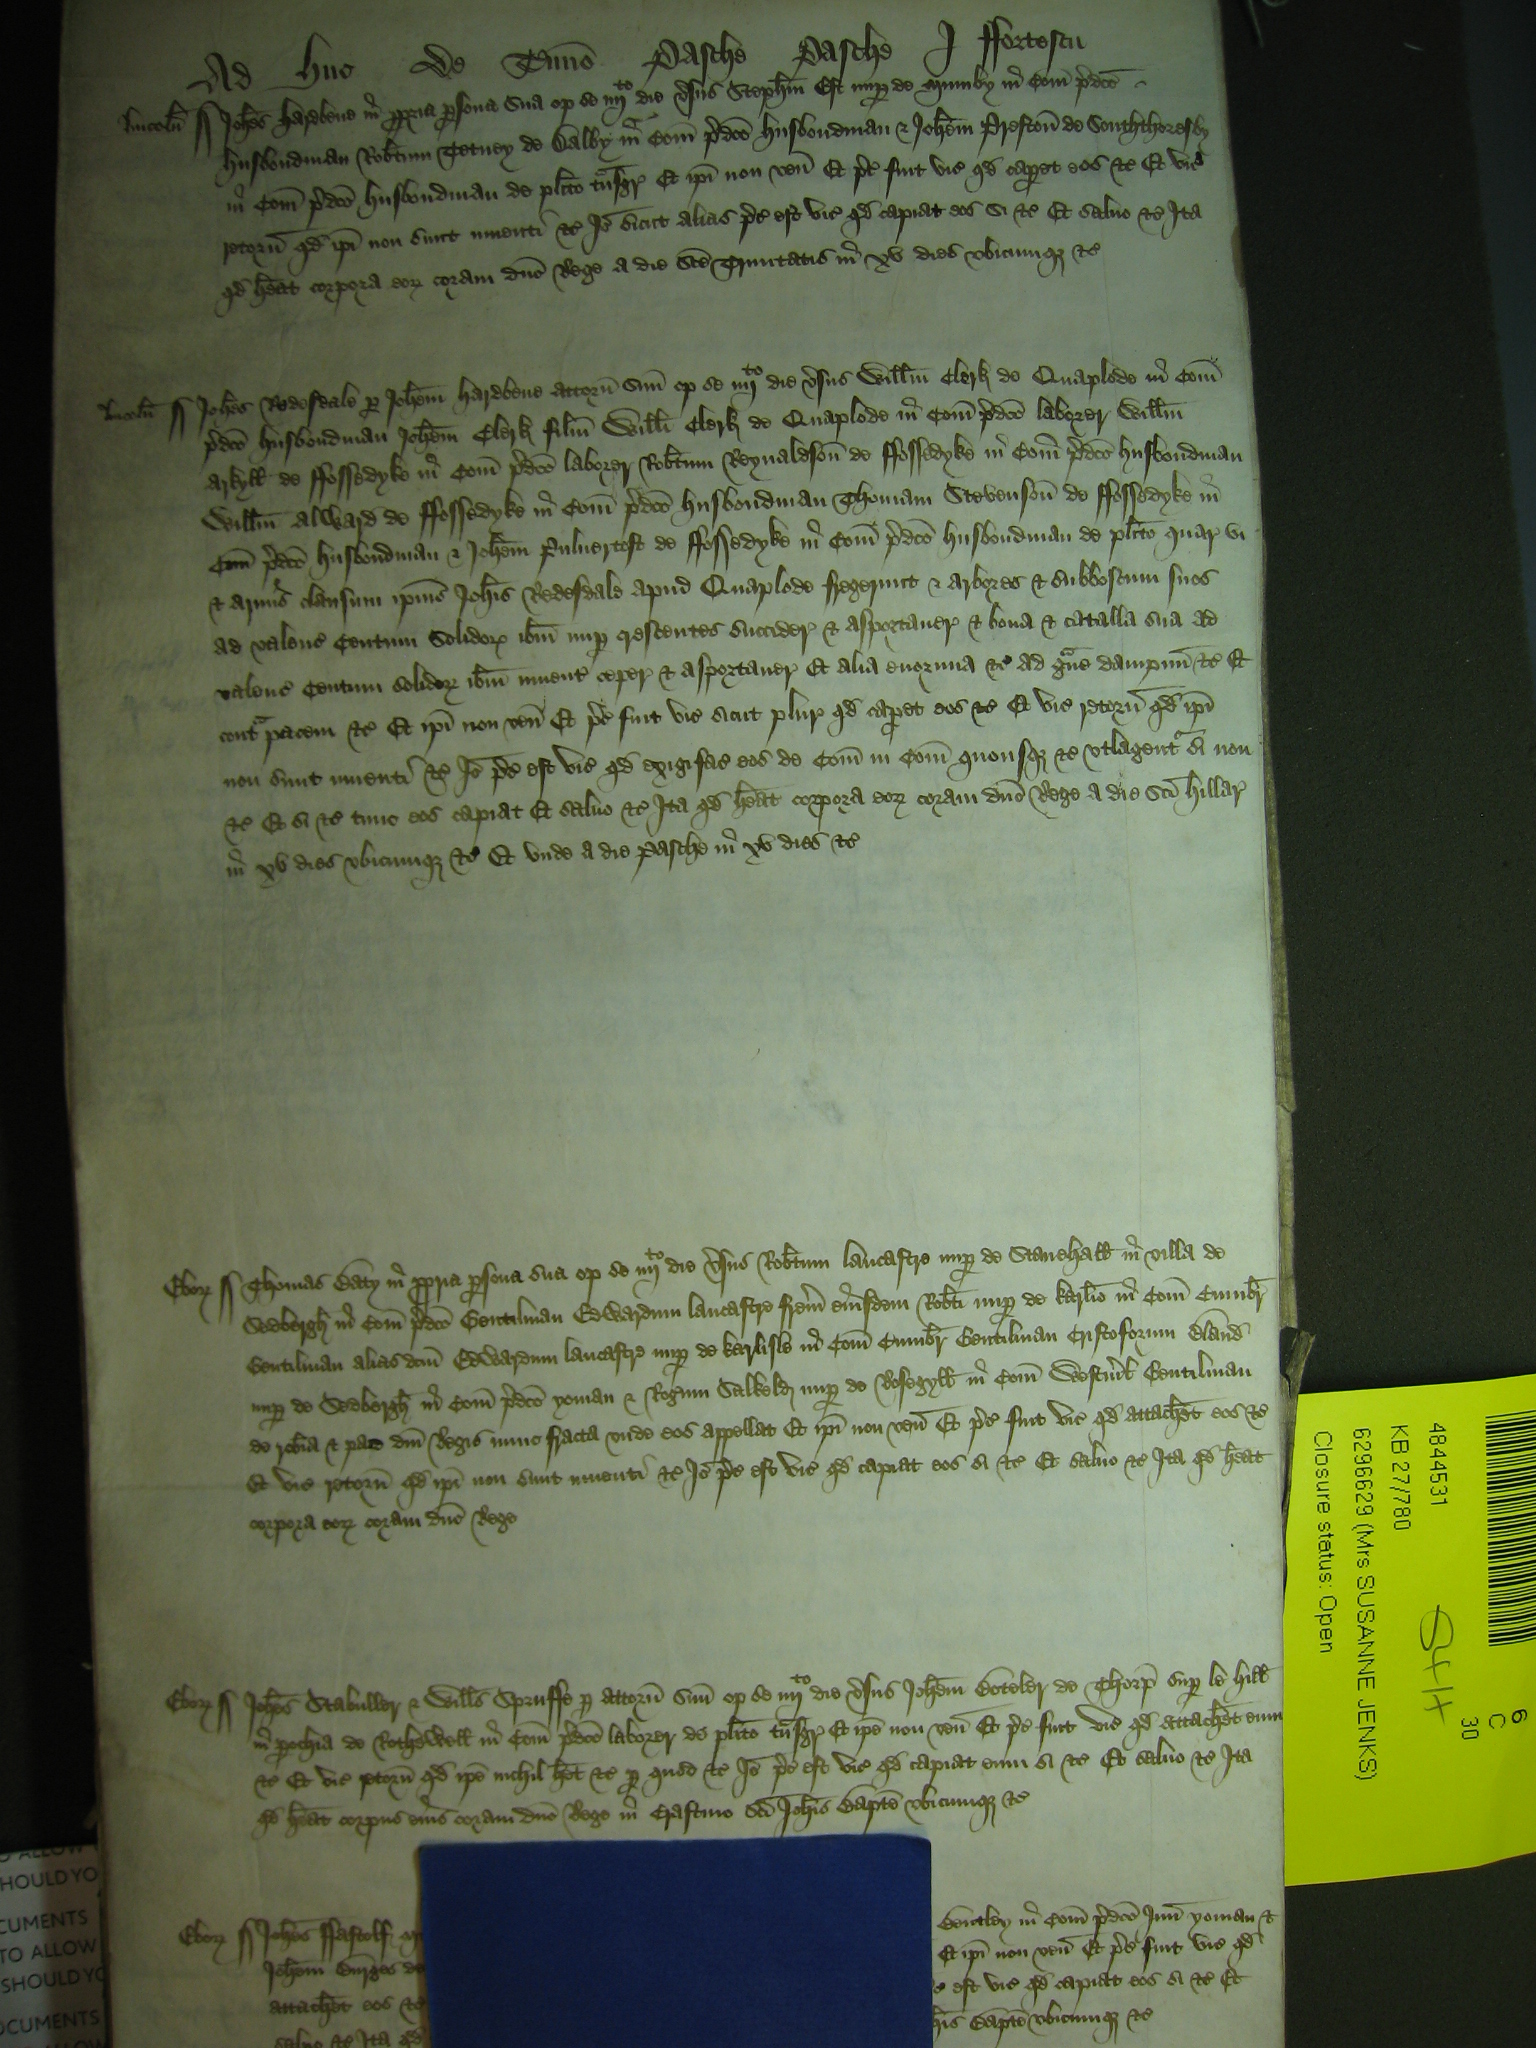 Ad huc de Tmīo Pasche Pasche J ffortescu
lincolñ Joħes Hardbene in ppria psona sua op se iiij to die vsus Stepħm Est nup de Mumby in Com p̄dc̄o
husbondman Rob̄tum Tetney de Dalby in Com p̄dc̄o husbondman & Joħem Preston̄ de Souththoresby
in Com p̄dc̄o husbondman de pl̄ito tn̄sgr Et ip̄i non ven̄ Et p̄c̄ fuit vic̄ qd capet eos &c̄ Et vic̄
retorn̄ qd ip̄i non sunt inuenti &c̄ Jō sicut alias p̄c̄ est vic̄ qd capiat eos si &c̄ Et saluo &c̄ Ita
qd ħeat corpora eor coram dn̄o Rege a die Sc̄e Trinitatis in xv dies vbicumq &c̄
lincolñ Joħes Redesdale p Joħem Hardbene attorn̄ suū op se iiij to die vsus Willm̄ Clerk de Quaplode in Com
p̄dc̄o husbondman Joħem Clerk filiū Willi Clerk de Quaplode in Com p̄dc̄o laborer Willm̄
Arkyll de ffossedyke in Com p̄dc̄o laborer Rob̄tum Reynaldson̄ de ffossedyke in Com p̄dc̄o husbondman
Willm̄ Alward de ffossedyke in Com p̄dc̄o husbondman Thomam Stevenson̄ de ffossedyke in
Com p̄dc̄o husbondman & Joħem Puluertoft de ffossedyke in Com p̄dc̄o husbondman de pl̄ito quar vi
& armis clausum ipius Joħis Redesdale apud Quaplode fregerunt & arbores & subboscum suos
ad valenc̄ Centum Solidor ib̄m nup crescentes succider & asportauer & bona & catalla sua ad
valenc̄ Centum solidor ib̄m inuent ceper & asportauer Et alia enormia &c̄ ad gue dampnū &c̄ Et
contra pacem &c̄ Et ip̄i non ven̄ Et p̄c̄ fuit vic̄ sicut plur qd capet eos &c̄ Et vic̄ retorn̄ qd ip̄i
non sunt inuenti &c̄ Jō p̄c̄ est vic̄ qd exigi fac̄ eos de Com in Com quousq &c̄ vtlagent si non
&c̄ Et si &c̄ tunc eos capiat Et saluo &c̄ Ita qd ħeat corpora eor coram dn̄o Rege a die Sc̄i Hillar
in xv dies vbicumq &c̄ Et vnde a die Pasche in xv dies &c̄
Ebor Thomas Baty in ppria psona sua op se iiij to die vsus Rob̄tum lancastre nup de Stanehall in villa de
Sedbergh in Com p̄dc̄o Gentilman Edwardum lancastre frem eiusdem Rob̄ti nup de karlio in Com Cumbr
Gentilman alias dcm̄ Edwardum lancastre nup de karlisle in Com Cumbr Gentilman Cristoforum Bland
nup de Sedbergh in Com p̄dc̄o yoman & Rogum Salkeld nup de Rosegyll in Com Westml̄ Gentilman
de rob̄ia & pace dn̄i Regis nunc fracta vnde eos appellat Et ip̄i non ven̄ Et p̄c̄ fuit vic̄ qd attacħet eos &c̄
Et vic̄ retorn̄ qd ip̄i non sunt inuenti &c̄ Jō p̄c̄ est vic̄ qd capiat eos si &c̄ Et saluo &c̄ Ita qd ħeat
corpora eor coram dn̄o Rege
Ebor Joħes Stabuller & Wills Spruffe p attorn̄ suū op se iiij to die vsus Joħem Boteler de Thorp sup le hill
in pochia de Rothewell in Com p̄dc̄o laborer de pl̄ito tn̄sgr Et ip̄e non ven̄ Et p̄c̄ fuit vic̄ qd attacħet eum
&c̄ Et vic̄ retorn̄ qd ip̄e nichil ħet &c̄ p quod &c̄ Jō p̄c̄ est vic̄ qd capiat eum si &c̄ Et saluo &c̄ Ita
qd ħeat corpus eius coram dn̄o Rege in Crastino Sc̄i Joħis Bapte vbicumq &c̄
Ebor Joħes ffastolf Bentley in Com p̄dc̄o Juñ yoman &
Joħem Burges de Et ip̄i non ven̄ Et p̄c̄ fuit vic̄ qd
attacħet eos &c̄ est vic̄ qd capiat eos si &c̄ Et
saluo &c̄ Ita qd Bapte vbicumq &c̄
6
C
30
4844531
S4H
KB 27/780
6296629 (Mrs SUSANNE JENKS)
Closure status: Open
TO ALLOW
SHOULD YO
CUMENTS
TO ALLOW
SHOULD YO
OCUMENTS